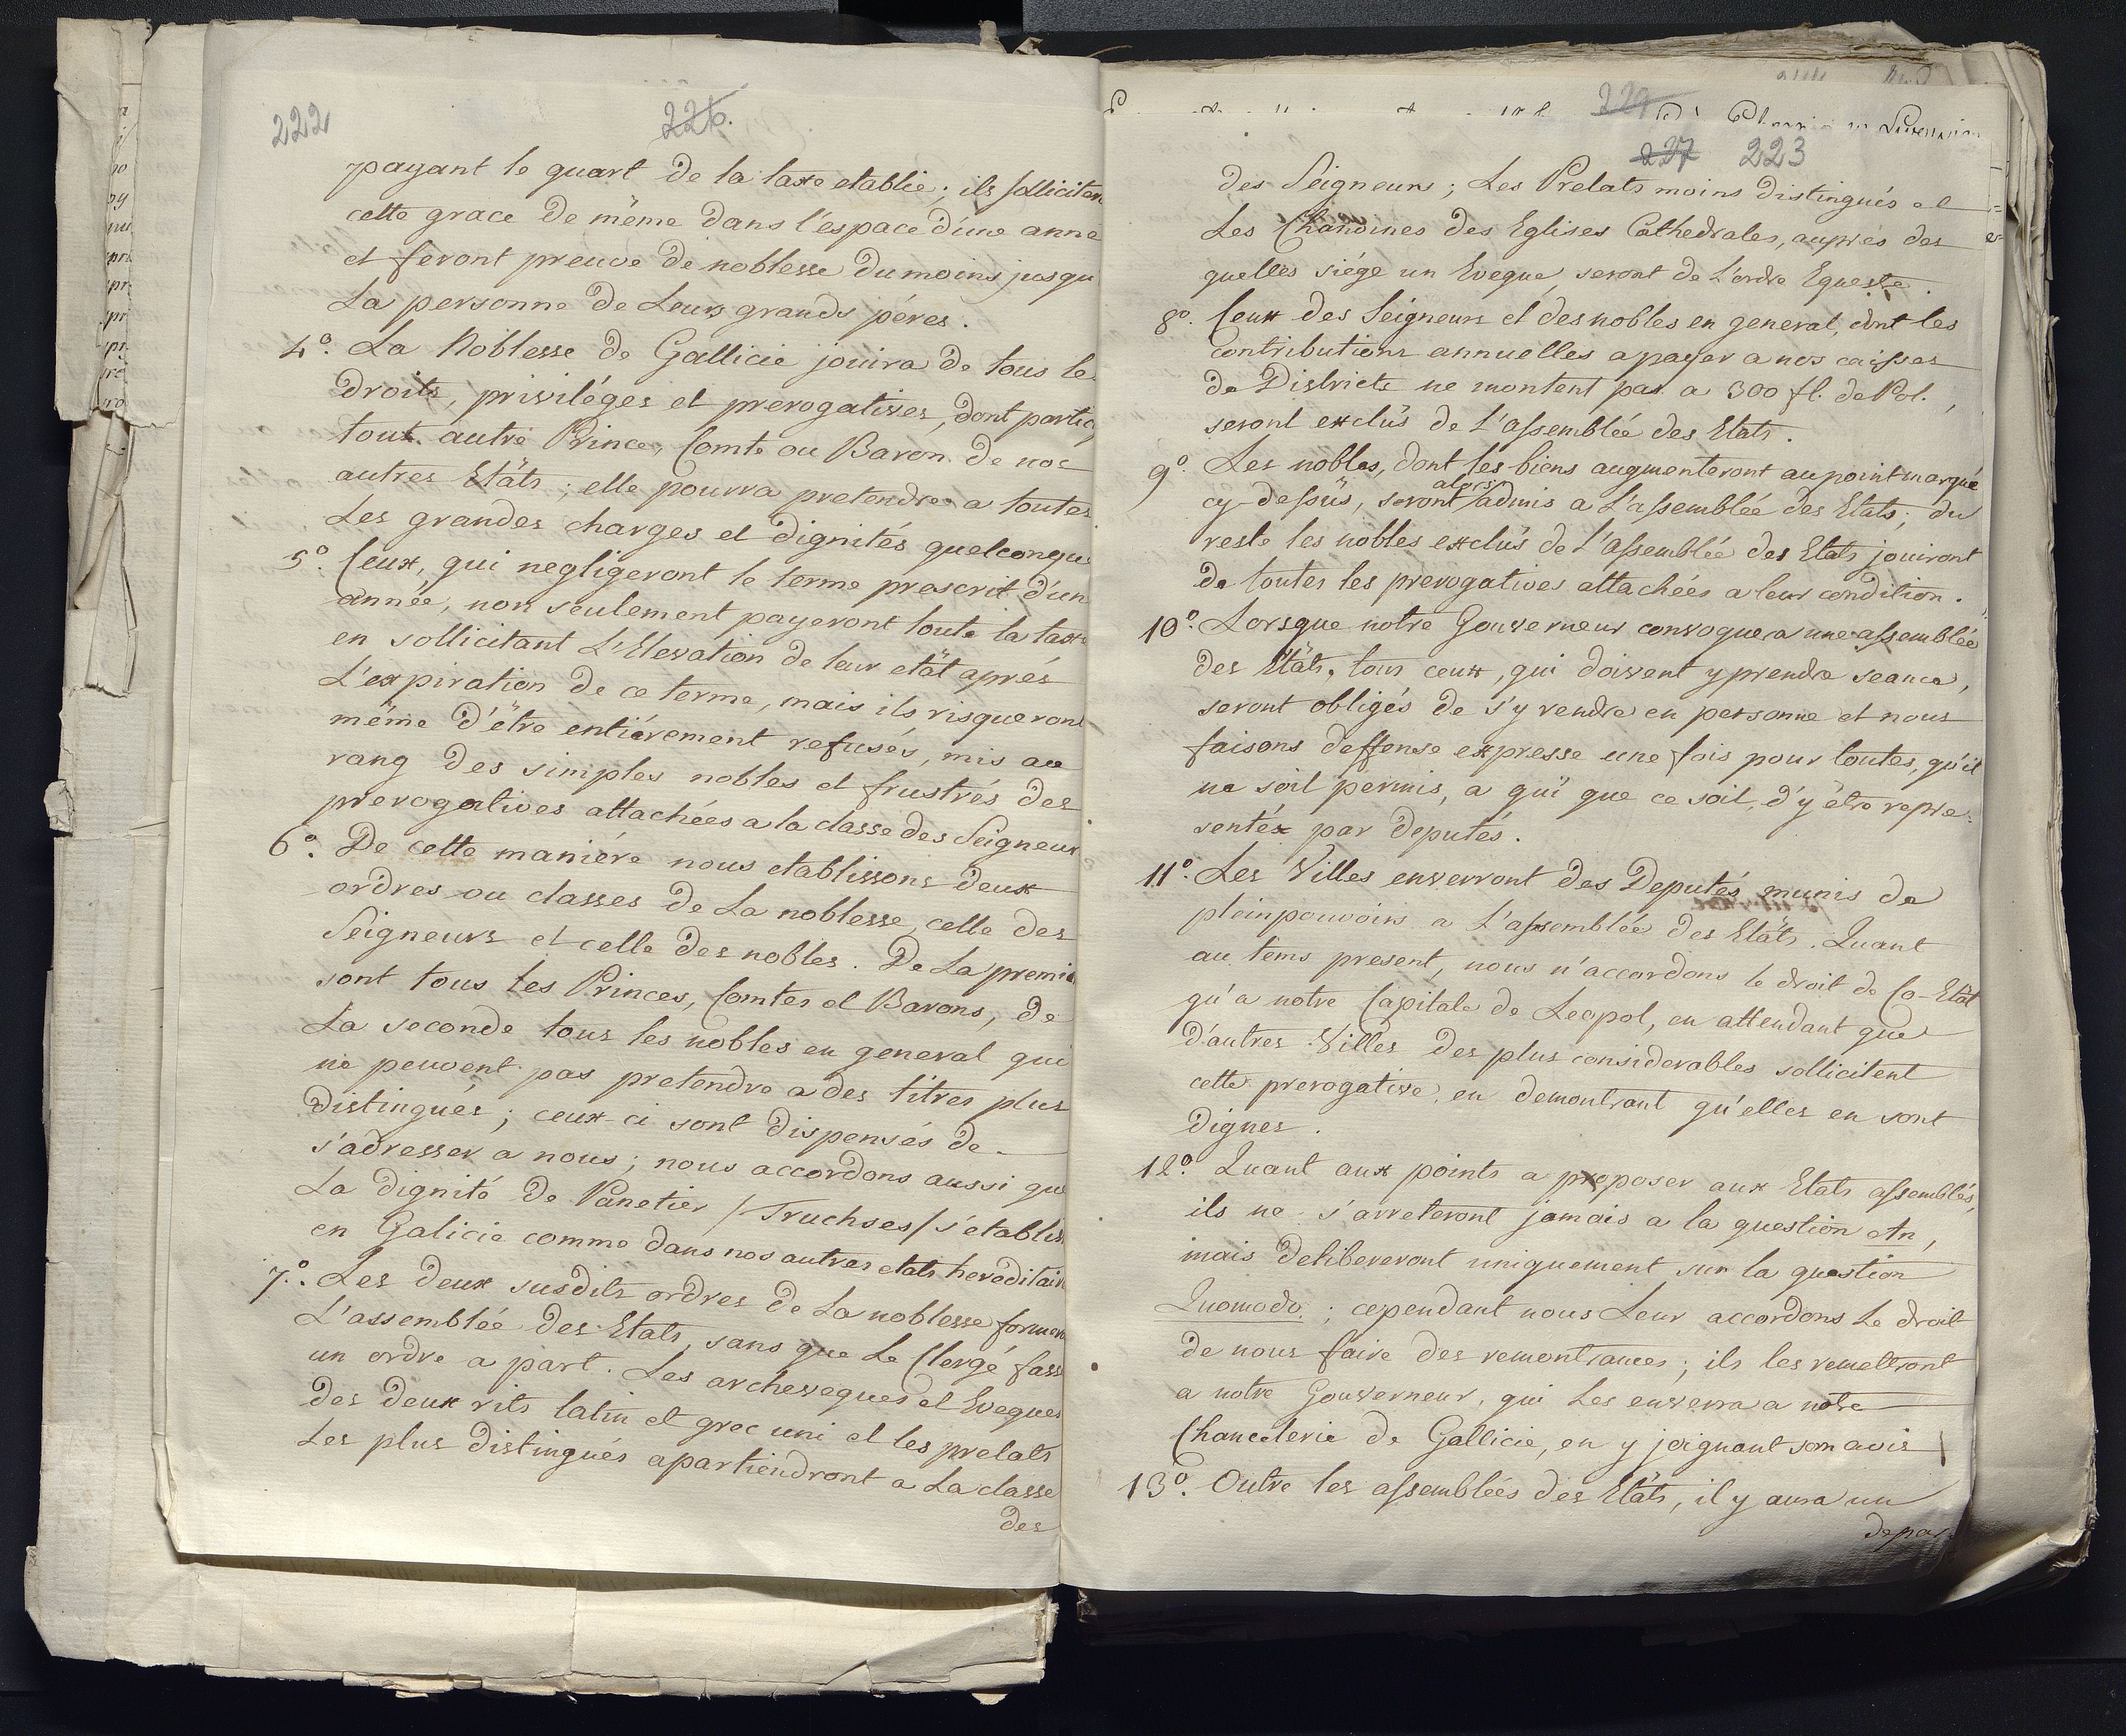 222
226.
payant le quart de la taxe etablie; ils solliciten
cette grace de même dans l'éspace d'une anne
et feront preuve de noblesse du moins jusqu
La personne de Leurs grands péres.
4º. La Noblesse de Gallicie jouira de tous le
droits, priviléges et prerogatives, dont partici
tout autre Prince, Comte ou Baron de nos
autres Etäts; elle pourra pretendre a toutes
Les grandes charges et dignités quelconque
5º. Ceux, qui negligeront le terme prescrit d'un
année, non seulement payeront toute la taxe
en sollicitant L'Elevation de leur etät aprés
L'expiration de ce terme, mais ils risqueront
même d'être entiérement refusés, mis au
rang des simples nobles et frustrés des
prerogatives attachées a la classe des Seigneurs
6º. De cette maniére nous etablissons deux
ordres ou classes de La noblesse, celle des
Seigneurs et celle des nobles. De La premie
sont tous les Princes, Comtes et Barons, de
La seconde tous les nobles en general qui
ne peuvent pas pretendre a des titres plus
distingués; ceux-ci sont dispensés de
s'adresser a nous; nous accordons aussi que
La dignité de Panetier /Truchses/ s'etablis
en Galicie comme dans nos autres etats hereditair
7º. Les deux susdits ordres de La noblesse formen
L'assemblée des Etats, sans que Le Clergé fass
un ordre a part. Les archeveques et Eveques
des deux rits latin et grec uni et les prelats
Les plus distingués apartiendront a La classe
des
229
227 223
des Seigneurs; Les Prelats moins distingués et
Les Chanoines des Eglises Cathedrales, auprés des
quelles siége un Eveque, seront de L'ordre Equestre.
8º. Ceux des Seigneurs et des nobles en general, dont les
contributions annuelles a payer a nos caisses
de Districts ne montent pas a 300 fl. de Pol.,
seront exclús de L'assemblée des Etats.
9º. Les nobles, dont les biens augmenteront au point marqué
cy-dessüs, seront alors admis a L'assemblée des Etats; du
reste les nobles exclús de L'assemblée des Etats jouiront
de toutes les prerogatives attachées a leur condition.
10º. Lorsque notre Gouverneur convoquera une assemblée
des Etäts, tous ceux, qui doivent y prendre seance,
seront obligés de s'y rendre en personne et nous
faisons deffense expresse une fois pour toutes, qu'il
ne soit permis, a qui que ce soit, d'y être repre-
sentéx par deputés.
11º. Les Villes enverront des Deputés munis de
pleinpouvoirs a L'assemblée des Etäts. Quant
au tems present, nous n'accordons le droit de Co-Etät
qu'a notre Capitale de Leopol, en attendant que
d'autres Villes des plus considerables sollicitent
cette prerogative, en demontrant qu'elles en sont
dignes.
12º. Quant aux points a proposer aux Etats assemblés,
ils ne s'arreteront jamais a la question An,
mais delibereront uniquement sur la question
Quomodo; cependant nous Leur accordons Le droit
de nous faire des remontrances; ils les remettront
a notre Gouverneur, qui Les enverra a nôtre
Chancelerie de Gallicie, en y joignant son avis
13º. Outre les assemblées des Etäts, il y aura un
depar-